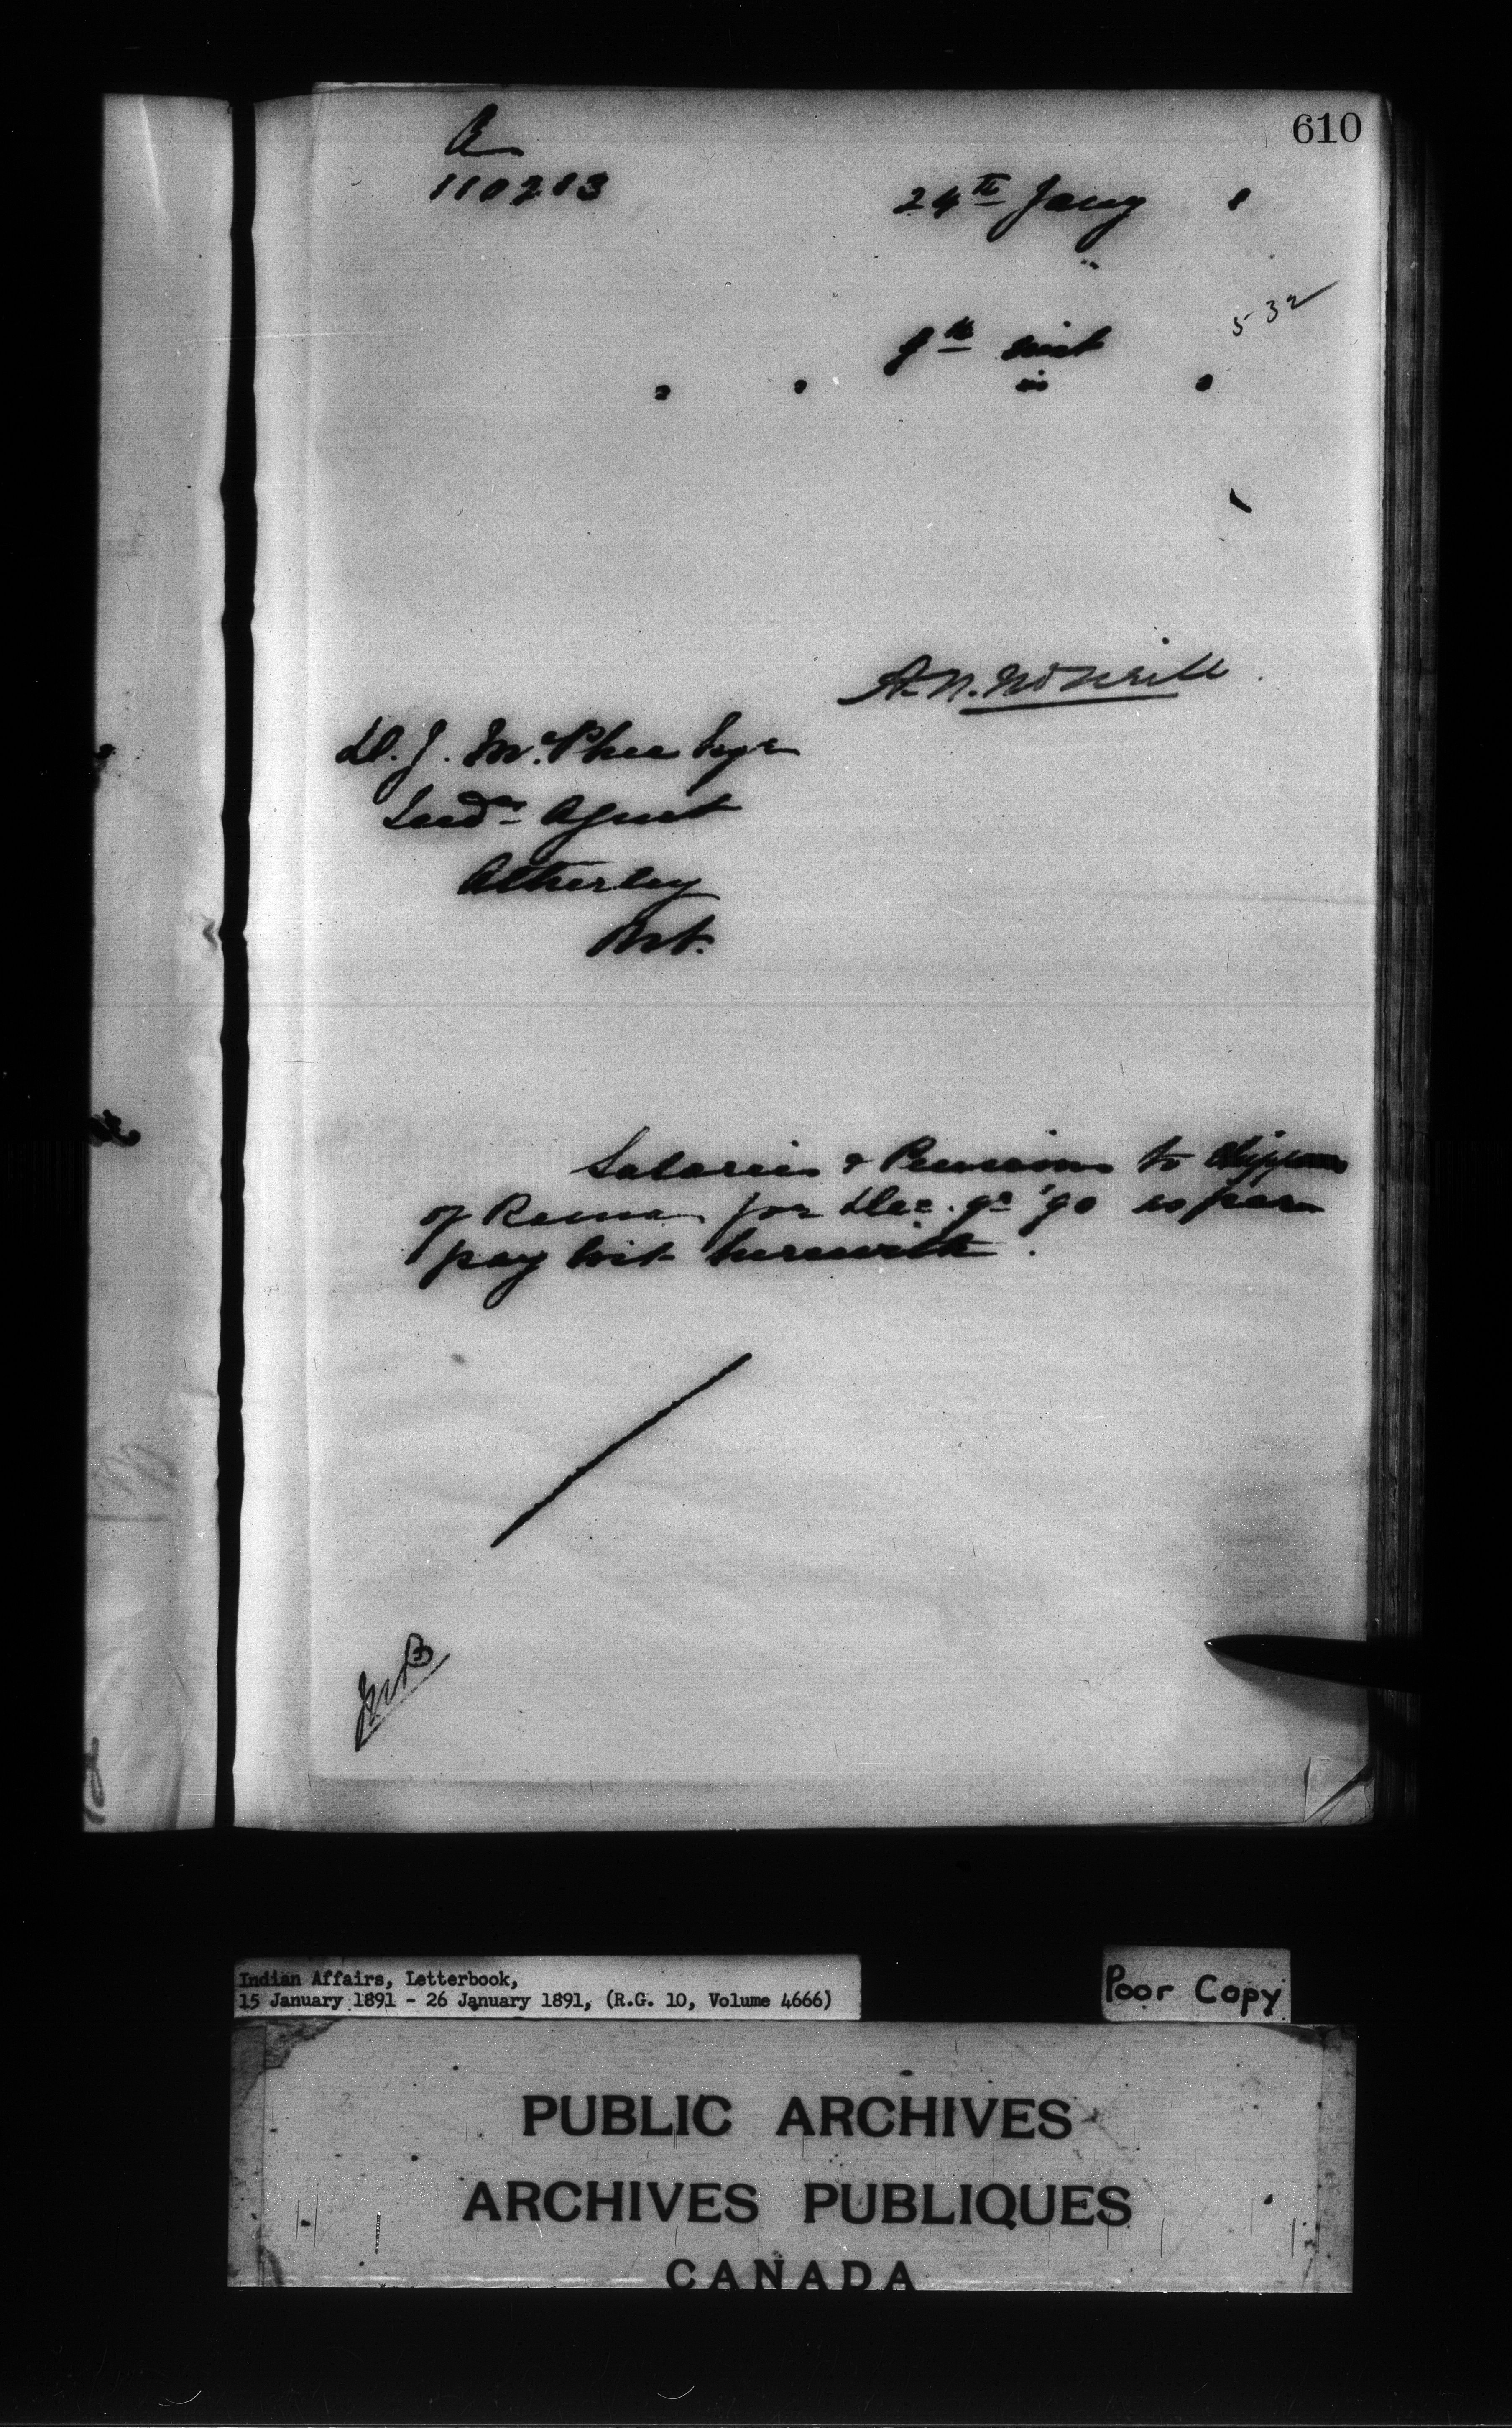 610
A
110213
24th Jany
532
9th inst
A. N. McNeill
D. J. McPhee Esqr
Indn Agent
Atherley
Ont.
Salaries & Pensions to Chippewas
of Rama for Dec. qr '90 as per
pay list herewith.
Indian Affairs, Letterbook,
15 January 1891 - 26 January 1891, (R.G. 10, Volume 4666)
Poor Copy
PUBLIC ARCHIVES
ARCHIVES PUBLIQUES
CANADA